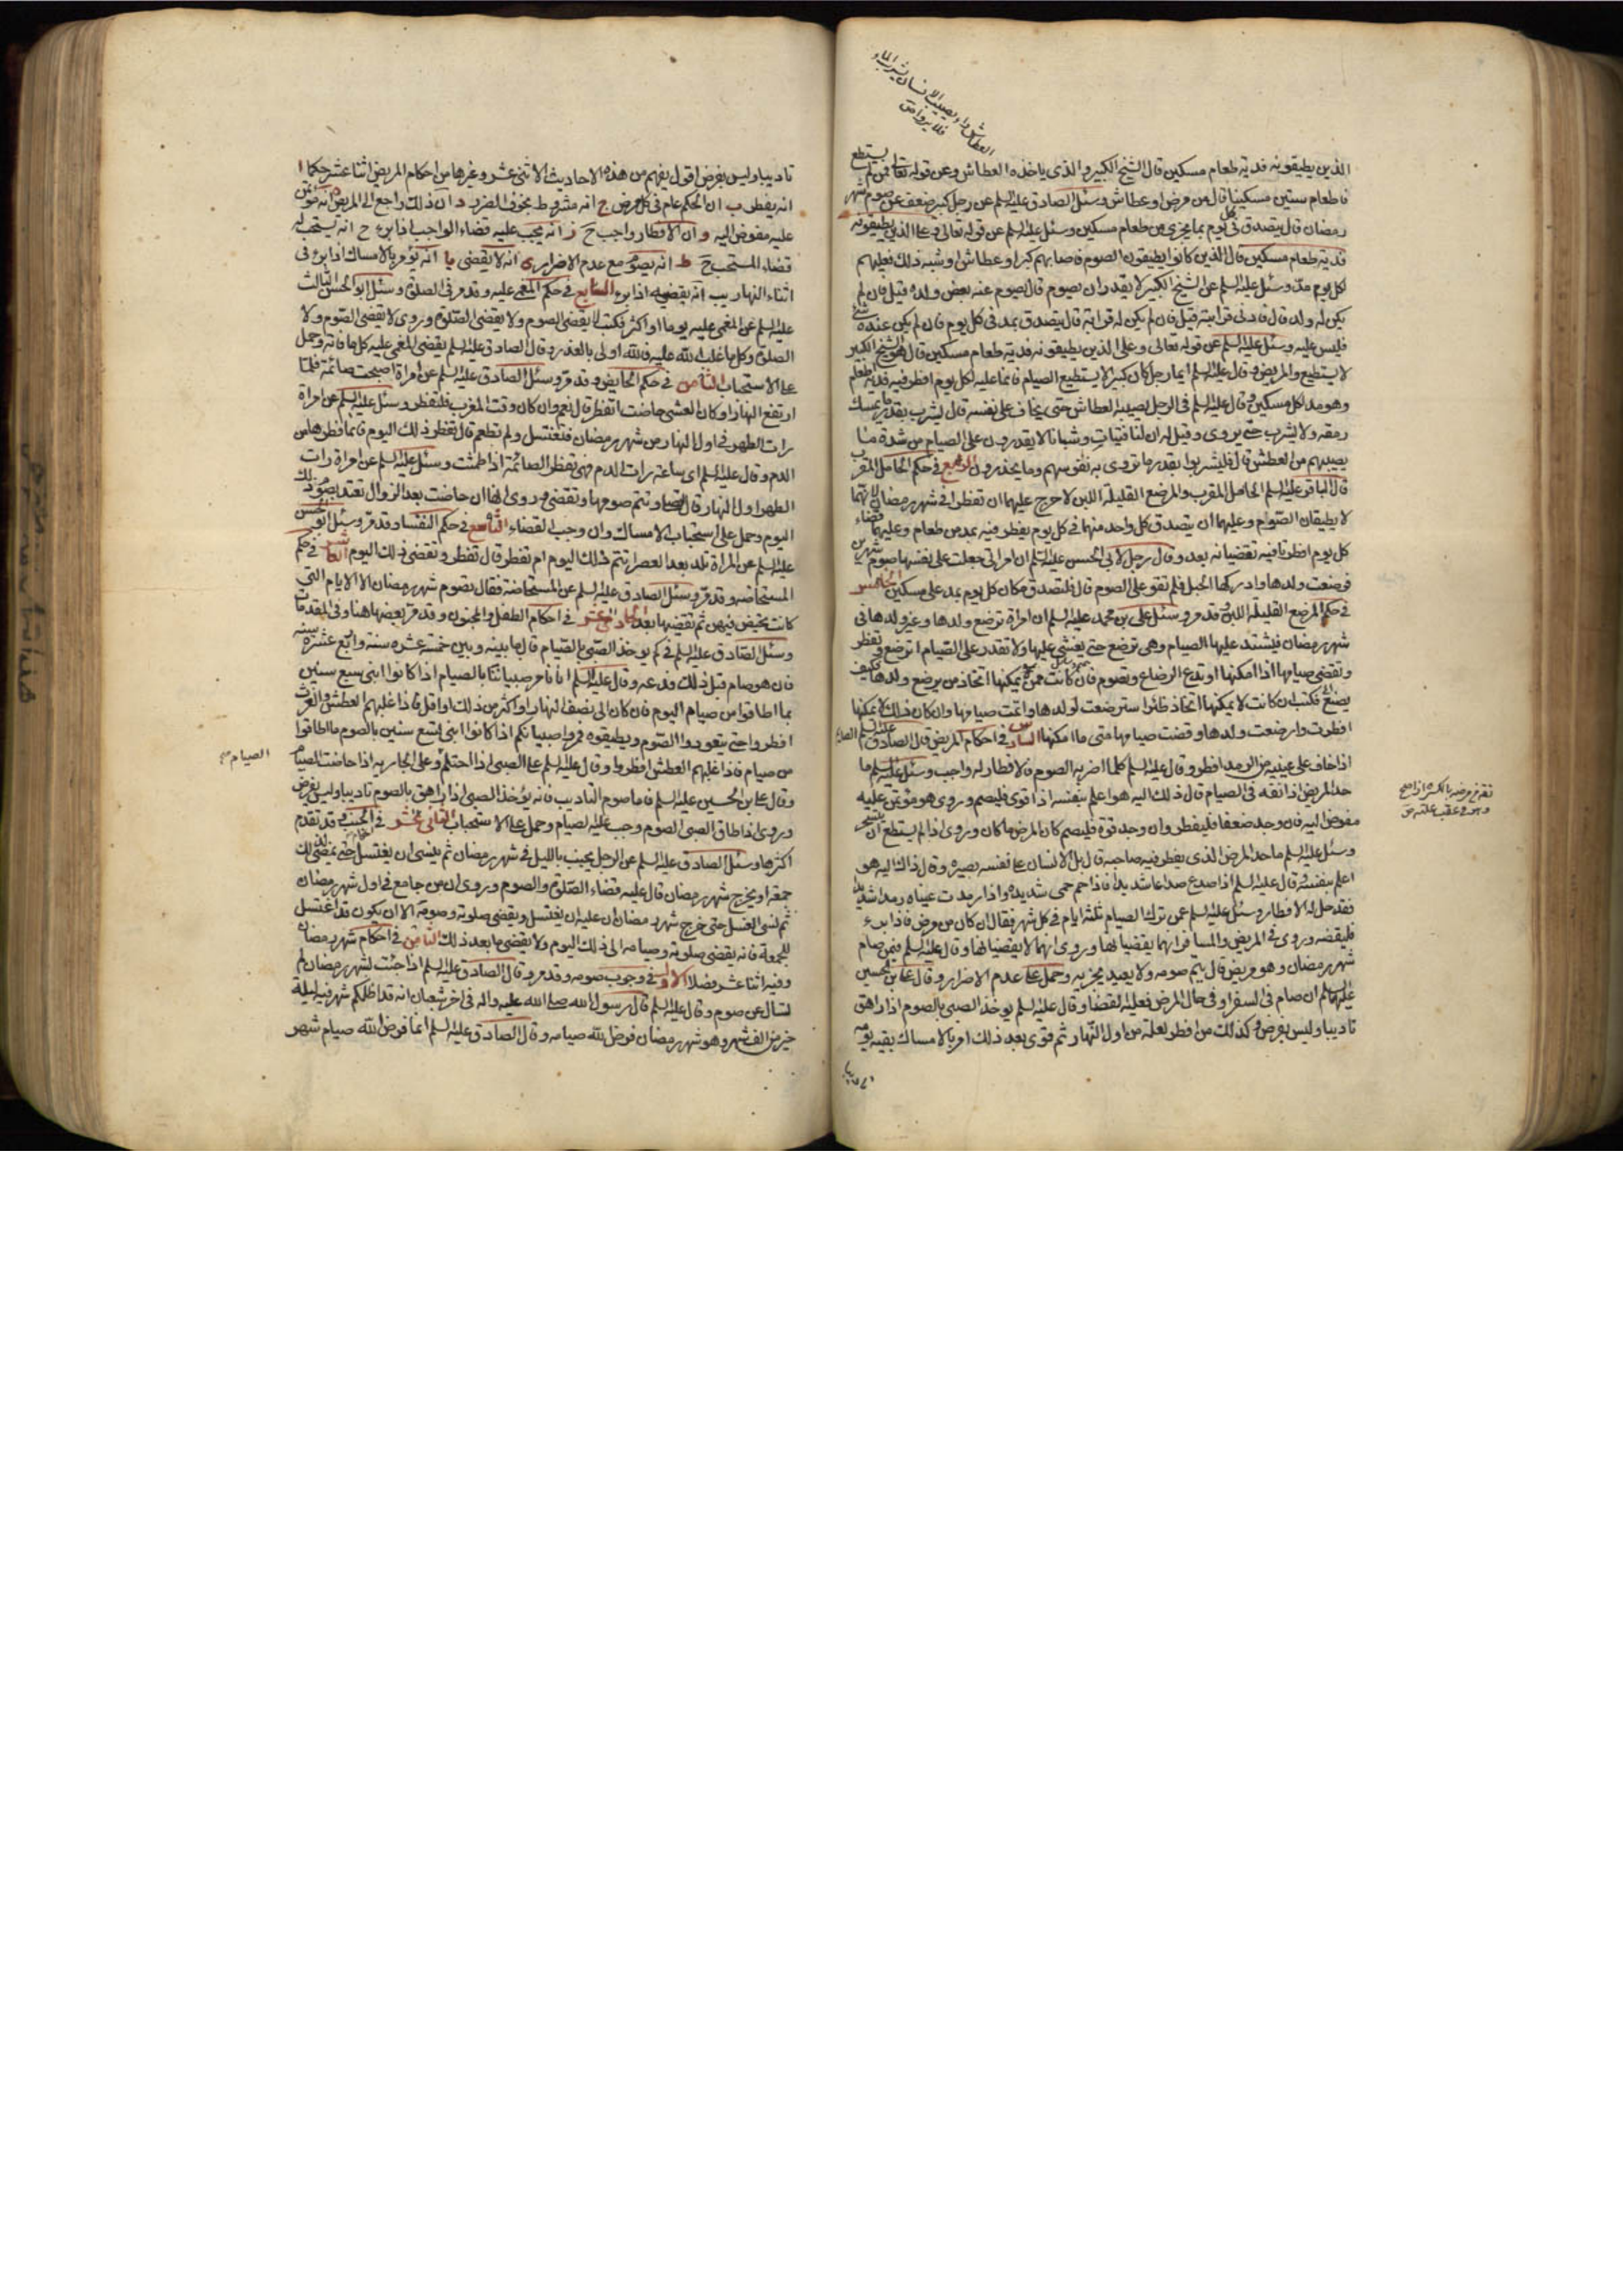 العطاش داء يصيب الانسان يشرب الماء
فلا يروى ص
الذين يطيقونه فدية طعام مسكين قال الشيخ الكبير والذي ياخذه العطاش وعن قوله تعالى فمن لم يستطع
فاطعام ستين مسكينا قال من مرض او عطاش وسئل الصادق عليه السلم عن رجل كبير ضعف عن صوم شهر
رمضان قال يتصدق كل يوم بما يجزي من طعام مسكين وسئل عليه السلم عن قوله تعالى وعلى الذين يطيقونه
فدية طعام مسكين قال الذين كانوا يطيقون الصوم فاصابهم كبر او عطاش او شبه ذلك فعليهم
لكل يوم مد وسئل عليه السلم عن الشيخ الكبير لا يقدر ان يصوم قال يصوم عنه بعض ولده قيل فان لم
يكن له ولد قال فادنى قرابته قيل فان لم يكن له قرابة قال يتصدق بمد في كل يوم فان لم يكن عنده شئ
فليس عليه وسئل عليه السلم عن قوله تعالى وعلى الذين يطيقونه فدية طعام مسكين قال هو الشيخ الكبير
لا يستطيع والمريض وقال عليه السلم ايما رجل كان كبيرا لا يستطيع الصيام فانما عليه لكل يوم افطر فيه فدية طعام
وهو مد لكل مسكين وقال عليه السلم في الرجل يصيبه العطاش حتى يخاف على نفسه قال يشرب بقدر ما يمسك
رمقه ولا يشرب حتى يروى وقيل له ان لنا فتيات وشبانا لا يقدرون على الصيام من شدة ما
يصيبهم من العطش قال فليشربوا بقدر ما تروى به نفوسهم وما يحذرون الرابع في حكم الحامل المقرب
قال الباقر عليه السلم الحامل المقرب والمرضع القليلة اللبن لا حرج عليهما ان تفطرا في شهر رمضان لانهما
لا يطيقان الصوم وعليهما ان يتصدق كل واحد منهما في كل يوم يفطر فيه بمد من طعام وعليهما قضاء
كل يوم افطرتا فيه تقضيانه بعد وقال رجل لابي الحسن عليه السلم ان امراتي جعلت على نفسها صوم شهرين
فوضعت ولدها وادركها الحبل فلم تقو على الصوم قال فلتصدق مكان كل يوم بمد على مسكين الخامس
في حكم المرضع القليلة اللبن وقد مر وسئل علي بن محمد عليه السلم ان امراة ترضع ولدها وغير ولدها في
شهر رمضان فيشتد عليها الصيام وهي ترضع حتى يغشى عليها ولا تقدر على الصيام ا ترضع وتفطر
وتقضي صيامها اذا امكنها او تدع الرضاع وتصوم فان كانت ممن لا يمكنها اتخاذ من يرضع ولدها فكيف
يصنع فكتب ان كانت لا يمكنها اتخاذ ظئر استرضعت لولدها واتمت صيامها وان كان ذلك لا يمكنها
افطرت وارضعت ولدها وقضت صيامها متى ما امكنها السادس في احكام المريض قال الصادق عليه السلم الصائم
اذا خاف على عينيه من الرمد افطر وقال عليه السلم كلما اضر به الصوم فالافطار له واجب وسئل عليه السلم ما
حد المريض اذا نقه في الصيام قال ذلك اليه هو اعلم بنفسه اذا قوى فليصم وروي هو مؤتمن عليه
مفوض اليه فان وجد ضعفا فليفطر وان وجد قوة فليصم كان المرض ما كان وروي اذا لم يستطع ان يتسحر
وسئل عليه السلم ما حد المرض الذي يفطر فيه صاحبه قال بل الانسان على نفسه بصيرة وقال ذاك اليه هو
اعلم بنفسه وقال عليه السلم اذا صدع صداعا شديدا فاذا حم حمى شديدة واذا رمدت عيناه رمدا شديدا
فقد حل له الافطار وسئل عليه السلم عمن ترك الصيام ثلثة ايام في كل شهر فقال ان كان من مرض فاذا برء
فليقضه وروي في المريض والمسافر انهما يقضيانها وروي انهما لا يقضيانها وقال عليه السلم فمن صام
شهر رمضان وهو مريض قال يتم صومه ولا يعيد يجزيه وحمل على عدم الاضرار وقال علي بن الحسين
عليهما السلم ان صام في السفر او في حال المرض فعليه القضا وقال عليه السلم يوخذ الصبي بالصوم اذا راهق
تاديبا وليس بفرض وكذلك من افطر لعلة من اول النهار ثم قوى بعد ذلك امر بالامساك بقية يومه
تاديبا
نقه من مرضه بالكسر اذا صح
وهو في عقب علته ص
تاديبا وليس بفرض اقول يفهم من هذه الاحاديث الاثنى عشر وغيرها من احكام المريض اثنا عشر حكما ا
انه يفطر ب ان الحكم عام في كل مرض ج انه مشروط بخوف الضرر د ان ذلك راجع الى المريض ه انه مؤتمن
عليه مفوض اليه و ان الافطار واجب ح ز انه يجب عليه قضاء الواجب اذا برء ح انه يستحب له
قضاء المستحب ح ط انه يصوم مع عدم الاضرار ى انه لا يقضي يا انه يؤمر بالامساك اذا برء في
اثناء النهار يب انه يقضيه اذا برء السابع في حكم المغمى عليه وقد مر في الصلوة وسئل ابو الحسن الثالث
عليه السلم عن المغمى عليه يوما او اكثر فكتب لا يقضي الصوم ولا يقضي الصلوة وروي لا يقضي الصوم ولا
الصلوة وكل ما غلب الله عليه فالله اولى بالعذر وقال الصادق عليه السلم يقضي المغمى عليه كل ما فاته وحمل
على الاستحباب الثامن في حكم الحايض وقد مر وسئل الصادق عليه السلم عن امراة اصبحت صائمة فلما
ارتفع النهار او كان العشي حاضت اتفطر قال نعم وان كان وقت المغرب فلتفطر وسئل عليه السلم عن امراة
رات الطهر في اول النهار من شهر رمضان فتغتسل ولم تطعم قال تفطر ذلك اليوم فانما فطرها من
الدم وقال عليه السلم اي ساعة رات الدم فهي تفطر الصائمة اذا طمثت وسئل عليه السلم عن امراة رات
الطهر اول النهار قال تصلي وتتم صومها وتقضي وروي انها ان حاضت بعد الزوال تعتد بصوم ذلك
اليوم وحمل على استحباب الامساك وان وجب القضاء التاسع في حكم النفساء وقد مر وسئل ابو الحسن
عليه السلم عن المراة تلد بعد العصر اتتم ذلك اليوم ام تفطر قال تفطر وتقضي ذلك اليوم العاشر في حكم
المستحاضة وقد مر وسئل الصادق عليه السلم عن المستحاضة فقال تصوم شهر رمضان الا الايام التي
كانت تحيض فيهن ثم تقضيها بعد الحادي عشر في احكام الطفل والمجنون وقد مر بعضها هنا وفي المقدمات
وسئل الصادق عليه السلم في كم يوخذ الصبي بالصيام قال ما بينه وبين خمسة عشرة سنة واربع عشرة سنة
فان هو صام قبل ذلك فدعه وقال عليه السلم انا نامر صبياننا بالصيام اذا كانوا ابني سبع سنين
بما اطاقوا من صيام اليوم فان كان الى نصف النهار او اكثر من ذلك او اقل فاذا غلبهم العطش والغرث
افطروا حتى يتعودوا الصوم ويطيقوه فمروا صبيانكم اذا كانوا ابني تسع سنين بالصوم ما اطاقوا
من صيام فاذا غلبهم العطش افطروا وقال عليه السلم على الصبي اذا احتلم وعلى الجارية اذا حاضت الصيام
وقال علي بن الحسين عليه السلم فاما صوم التاديب فانه يؤخذ الصبي اذا راهق بالصوم تاديبا وليس بفرض
وروي اذا طاق الصبي الصوم وجب عليه الصيام وحمل على الاستحباب الثاني عشر في الجنب وقد تقدم
اكثرها وسئل الصادق عليه السلم عن الرجل يجنب بالليل في شهر رمضان ثم ينسى ان يغتسل حتى يمضي لذلك
جمعة او يخرج شهر رمضان قال عليه قضاء الصلوة والصوم وروي ان من جامع في اول شهر رمضان
ثم نسي الغسل حتى خرج شهر رمضان ان عليه ان يغتسل ويقضي صلوته وصومه الا ان يكون قد اغتسل
للجمعة فانه يقضي صلوته وصيامه الى ذلك اليوم ولا يقضي ما بعد ذلك الثامن في احكام شهر رمضان
وفيه اثنا عشر فصلا الاول في وجوب صومه وقد مر وقال الصادق عليه السلم اذا جئت بشهر رمضان لم
تسال عن صوم وقال عليه السلم قال رسول الله صلى الله عليه واله في اخر شعبان انه قد اظلكم شهر فيه ليلة
خير من الف شهر وهو شهر رمضان فرض الله صيامه وقال الصادق عليه السلم انما فرض الله صيام شهر
الصيام